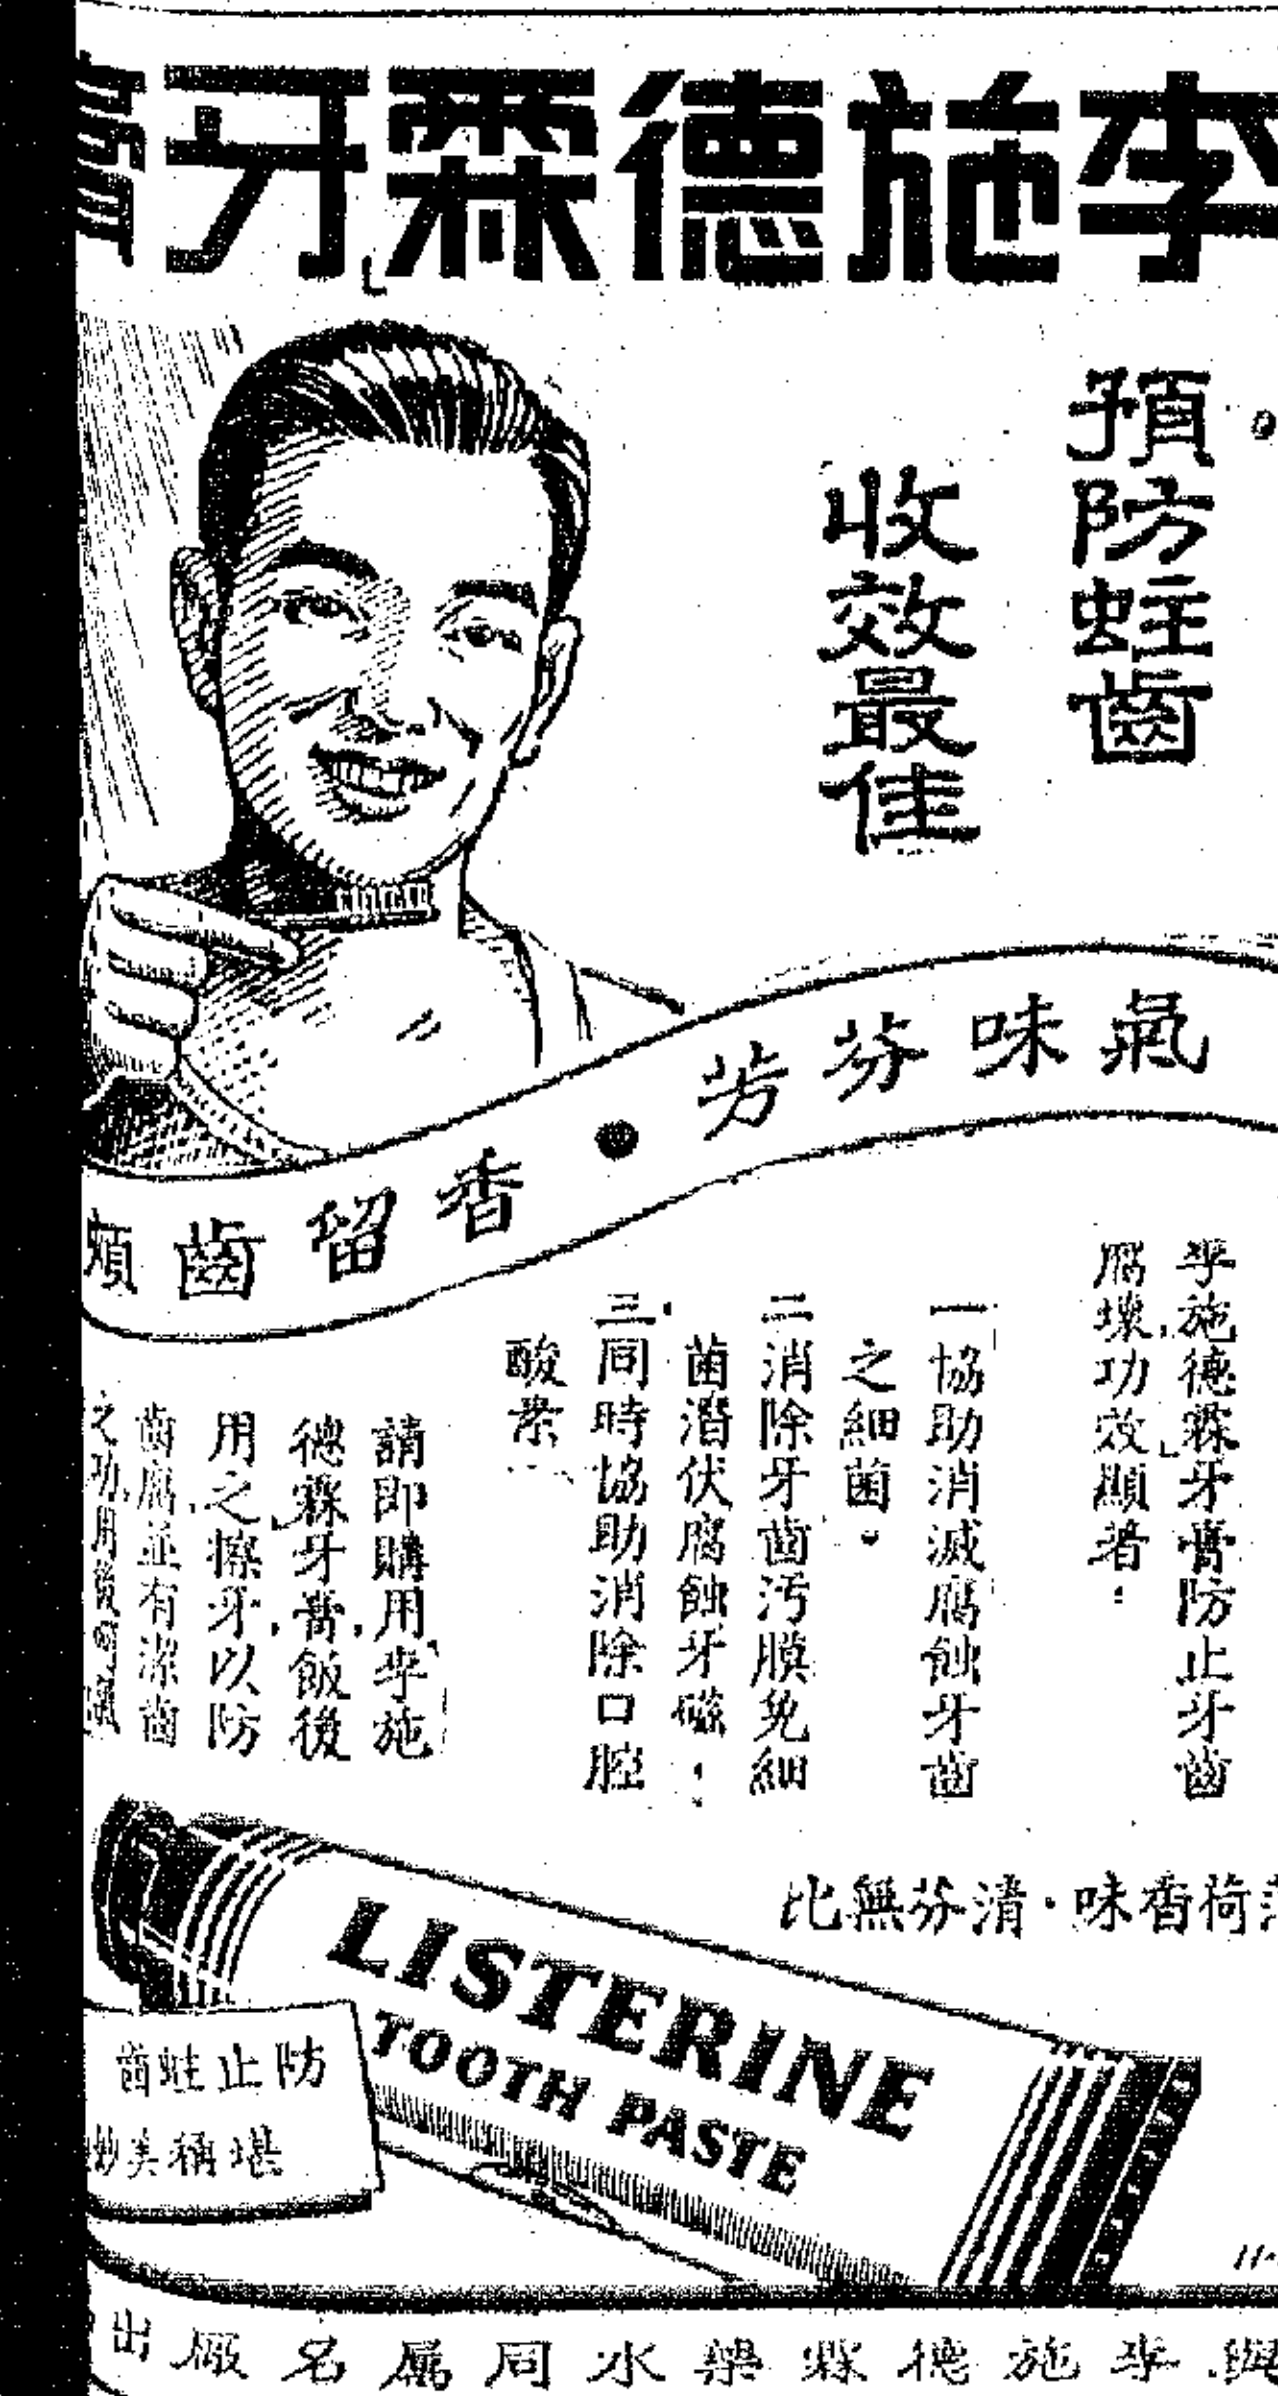 李施德霖牙膏
預防蛀齒
收效最佳
氣味芬芳●香留齒頰
李施德霖牙膏防止牙齒
腐壞功效顯著：
一協助消滅腐蝕牙齒
之細菌。
二消除牙齒汚膜免細
菌潛伏腐蝕牙磁．
三．同時協助消除口腔
酸素
請即購用李施
德霖牙膏，飯後
用之擦牙，以防
齒腐並有潔齒
之功，用後
荷香味·清芬無比
LISTERINE
TOOTH PASTE
防止蛀齒
堪稱美妙
與李施德霖藥水同屬名廠出